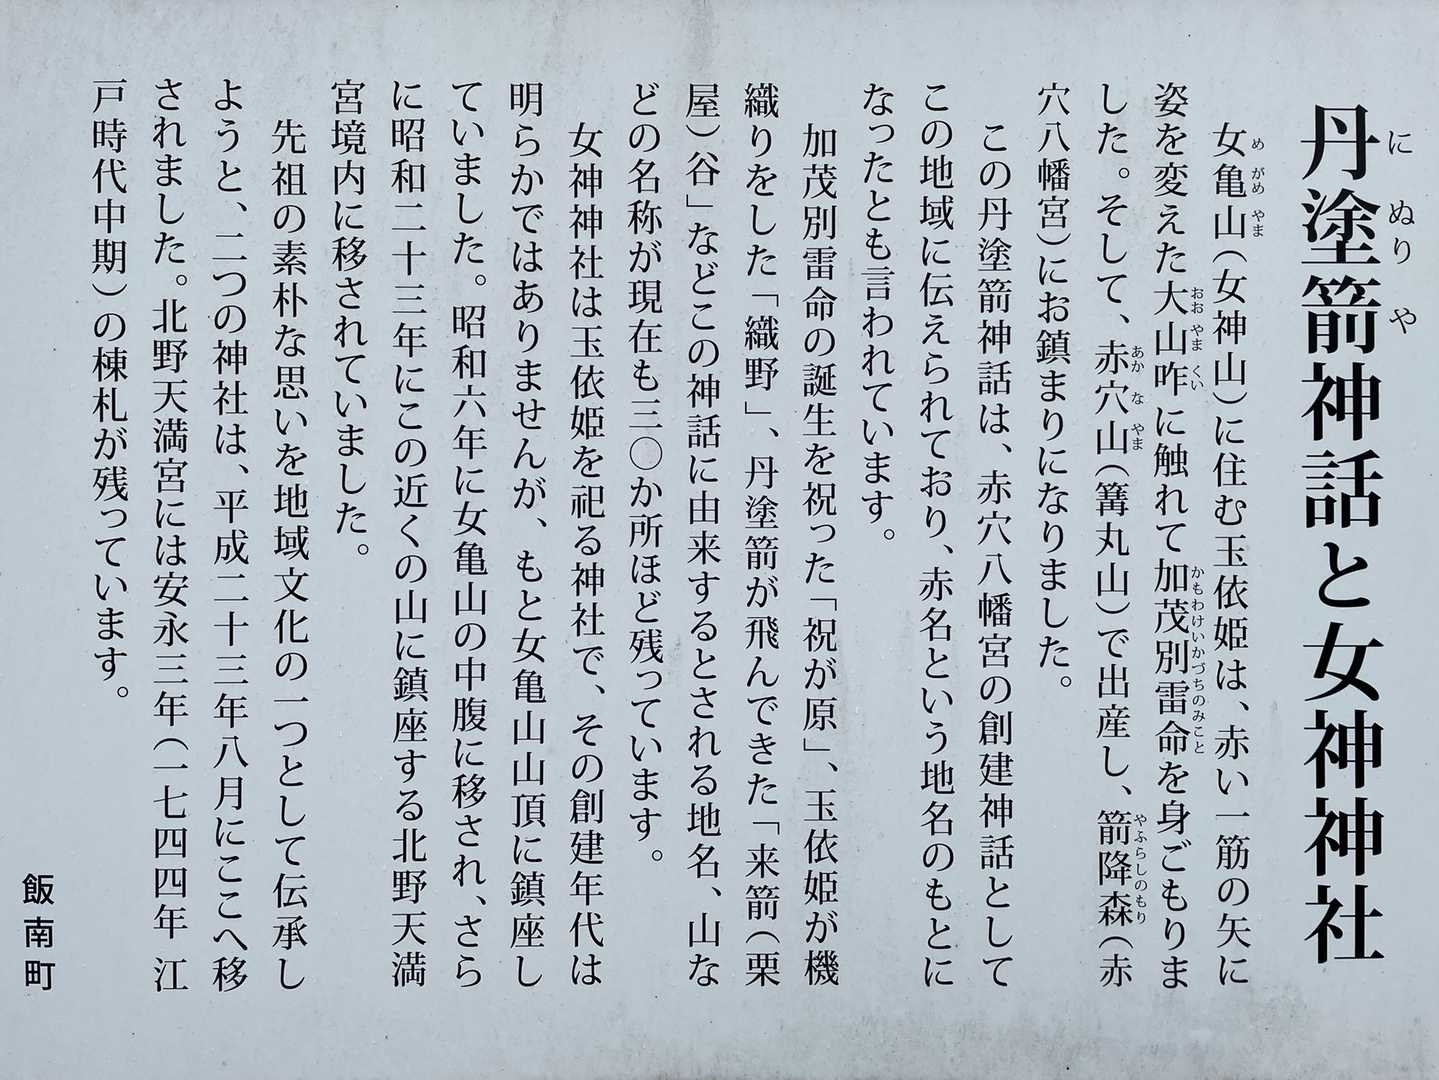 丹塗箭神話と女神神社
にぬりや
女亀山(女神山)に住む玉依姫は、赤い一筋の矢に
めがめやま
姿を変えた大山咋に触れて加茂別雷命を身ごもりま
おおやまくい
かもわけいかづちのみこと
した。そして、赤穴山(篝丸山)で出産し、箭降森(赤
あかなやま
やふらしのもり
穴八幡宮)にお鎮まりになりました。
この丹塗箭神話は、赤穴八幡宮の創建神話として
この地域に伝えられており、赤名という地名のもとに
なったとも言われています。
加茂別雷命の誕生を祝った「祝が原」、玉依姫が機
織りをした「織野」、丹塗箭が飛んできた「来箭(栗
屋)谷」などこの神話に由来するとされる地名、山な
どの名称が現在も三〇か所ほど残っています。
女神神社は玉依姫を祀る神社で、その創建年代は
明らかではありませんが、もと女亀山山頂に鎮座し
ていました。昭和六年に女亀山の中腹に移され、さら
に昭和二十三年にこの近くの山に鎮座する北野天満
宮境内に移されていました。
先祖の素朴な思いを地域文化の一つとして伝承し
ようと、二つの神社は、平成二十三年八月にここへ移
されました。北野天満宮には安永三年(一七四四年 江
戸時代中期)の棟札が残っています。
飯南町